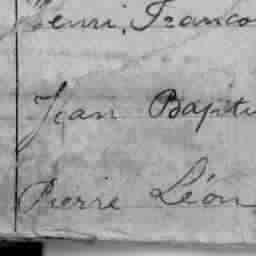 Henri, Franco
Jean Baptis
Pierre Léon